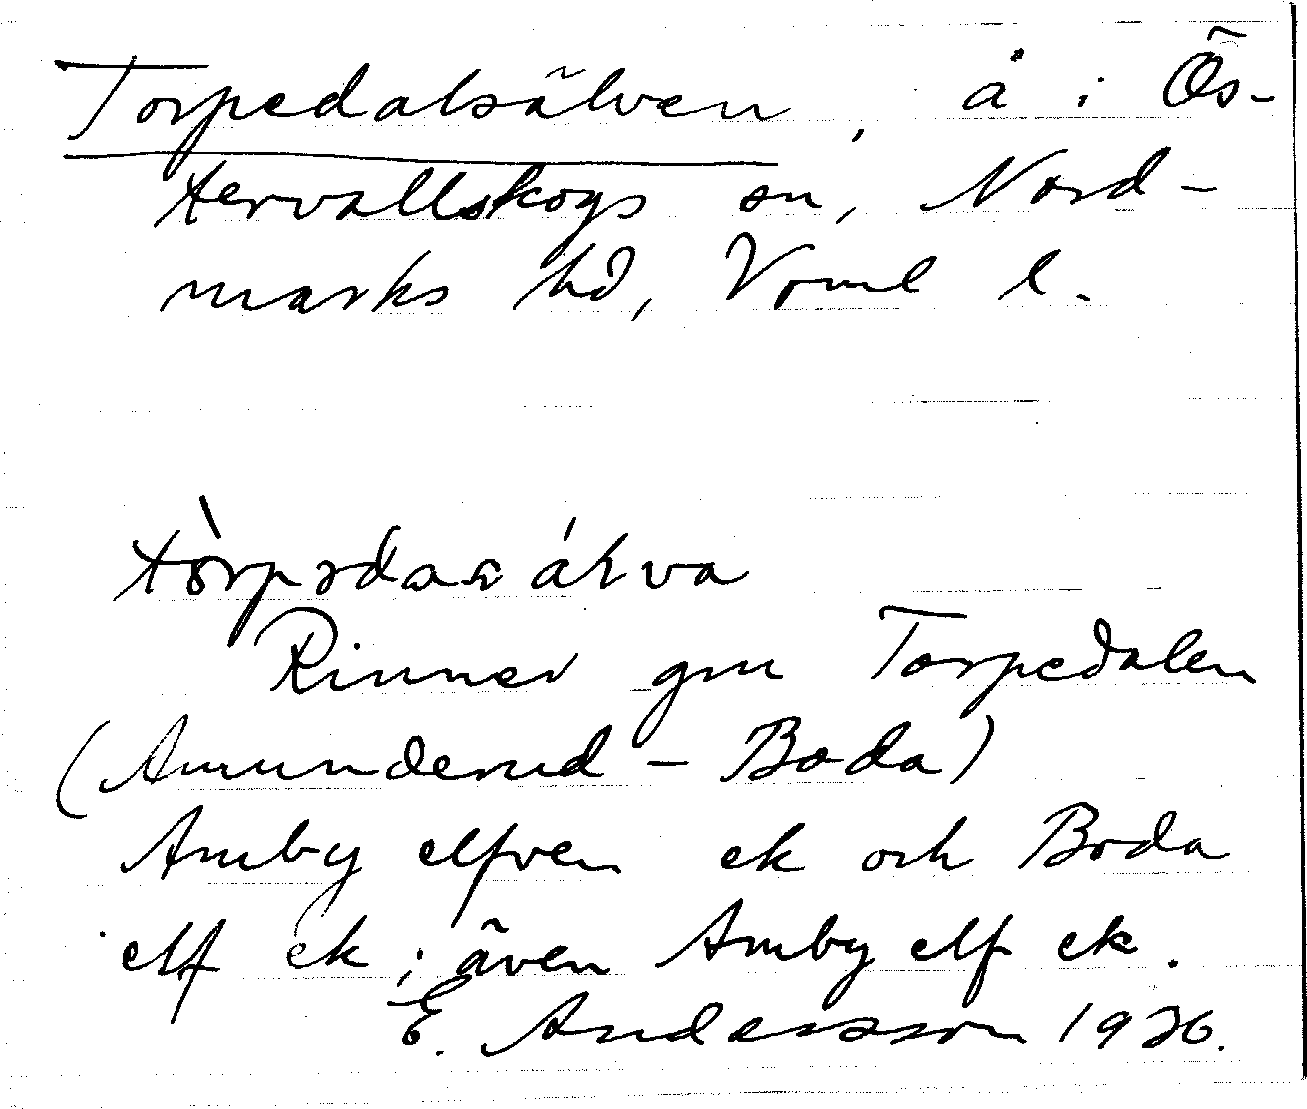 Torpedalsälven, å i Ös-
tervallskogs sn, Nord-
marks hd, Vrml l.
Rinner gm Torpedalen
(Amunderud - Boda)
Amby elfven ek och Boda
elf ek; även Amby elf ek.
E. Andersson 1926.